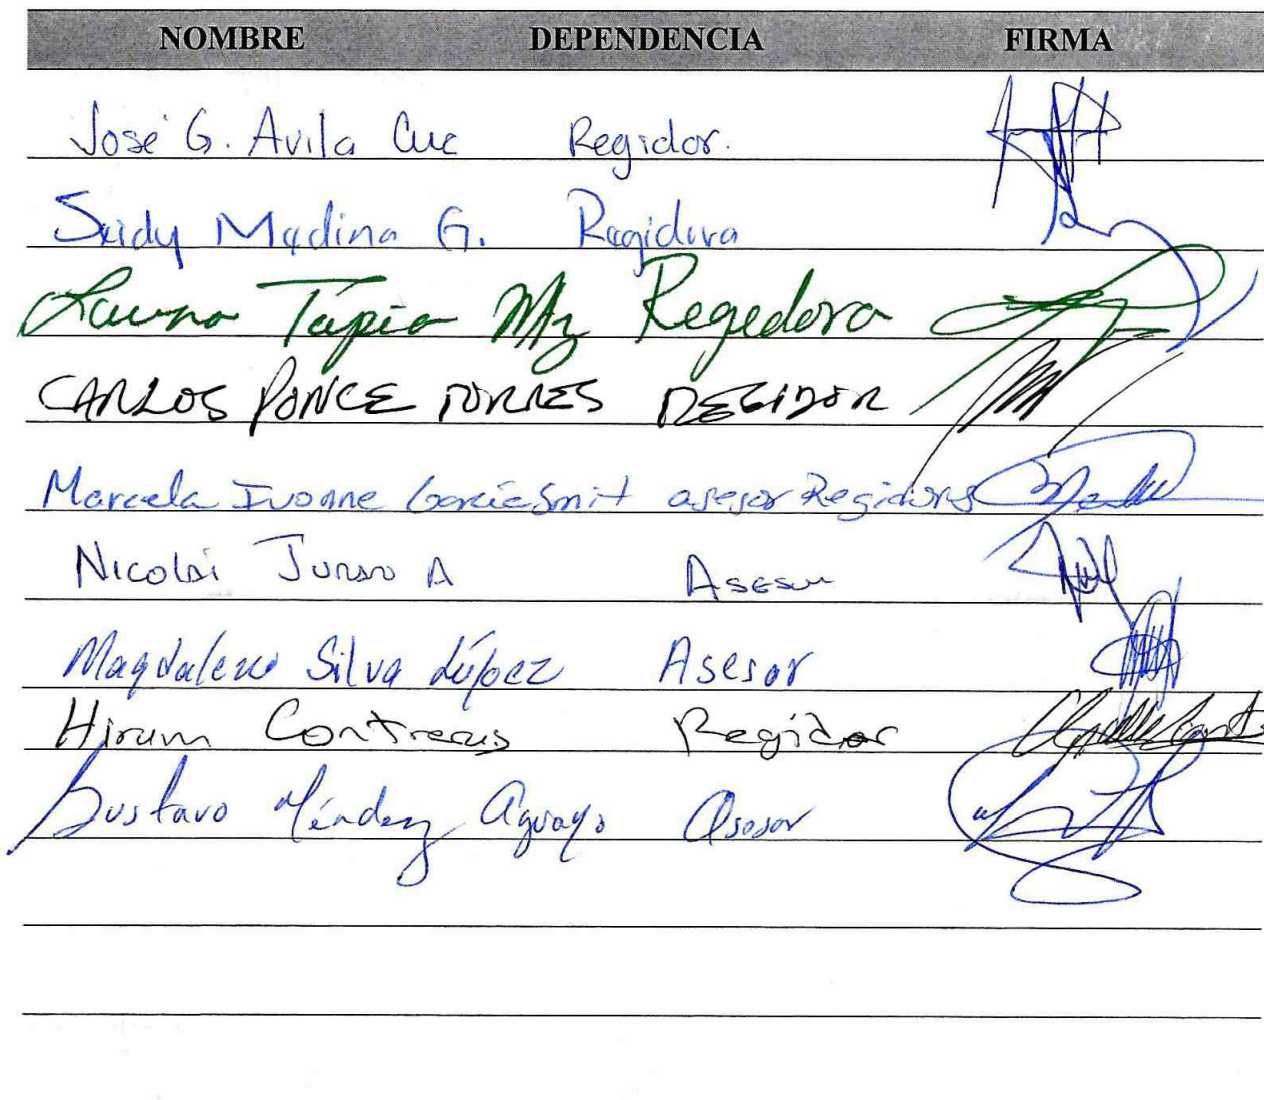 NOMBRE DEPENDENCIA FIRMA
José G. Avila Cuc Regidor.
Seidy Medina G. Regidora
Tapia Mtz Regedora
CARLOS PONCE TORRES REGIDOR
Marcela Ivonne García Smit asesor Regidores
Nicolai A Asesor
Magdaleno Silva López Asesor
Hiram Contreras Regidor
Gustavo Méndez Aguayo Asesor